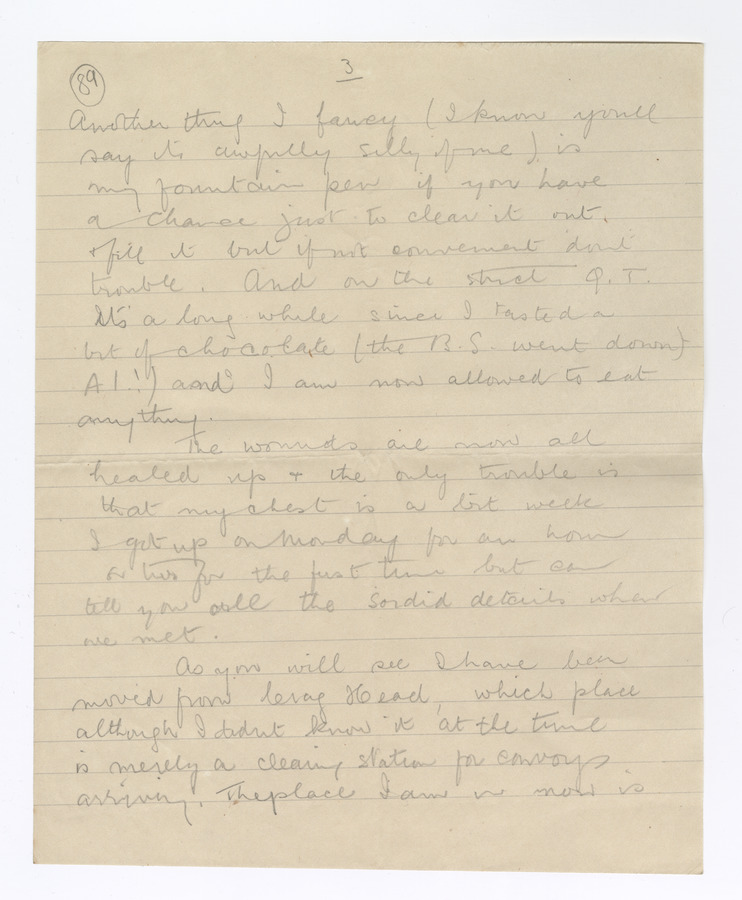 89
3
Another thing I fancy (I know you'll
say its awfully silly of me) is
my fountain pen if you have
a chance just to clean it out.
& fill it but if not convenient dont
trouble. And on the strict Q.T.
It's a long while since I tasted a
bit of chocolate (the B.S. went down
A1!) and I am now allowed to eat
anything.
The wounds are now all
healed up & the only trouble is
that my chest is a bit weak
I get up on Monday for an hour
or two for the first time but can
tell you all the sordid details when
we met.
As you will see I have been
moved from Crag Head, which place
although I didnt know it at the time
is merely a clearing station for convoys
arriving. The place I am in now is